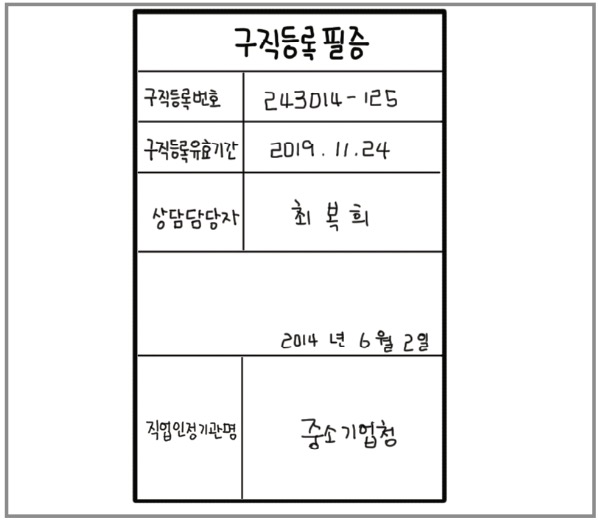 구직등록 필증
구직등록번호 243014-125
구직등록유효기간 2019.11.24
상담담당자 최복희
2014년 6월 2일
직업인정기관명 중소기업청